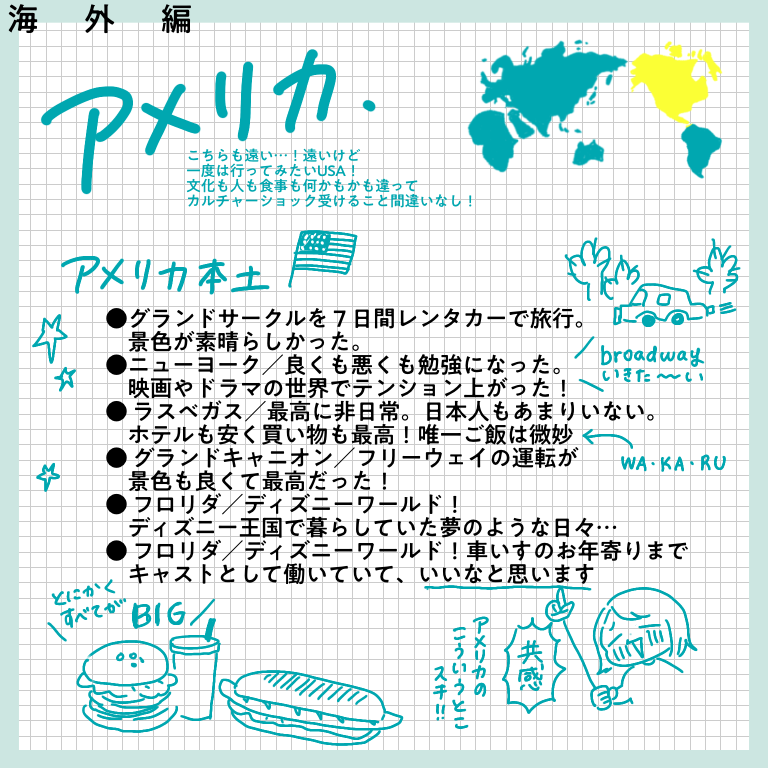 海外編
アメリカ.
こちらも遠い…！遠いけど
一度は行ってみたいUSA！
文化も人も食事も何かもかも違って
カルチャーショック受けること間違いなし！
アメリカ本土
●グランドサークルを７日間レンタカーで旅行。
景色が素晴らしかった。
●ニューヨーク／良くも悪くも勉強になった。
映画やドラマの世界でテンション上がった！
broadway
いきた〜〜い
●ラスベガス／最高に非日常。日本人もあまりいない。
ホテルも安く買い物も最高！唯一ご飯は微妙
WA・KA・RU
●グランドキャニオン／フリーウェイの運転が
景色も良くて最高だった！
●フロリダ／ディズニーワールド！
ディズニー王国で暮らしていた夢のような日々…
●フロリダ／ディズニーワールド！車いすのお年寄りまで
キャストとして働いていて、いいなと思います
とにかく
すべてが
BIG
アメリカの
こういうとこ
スキ!!
共感